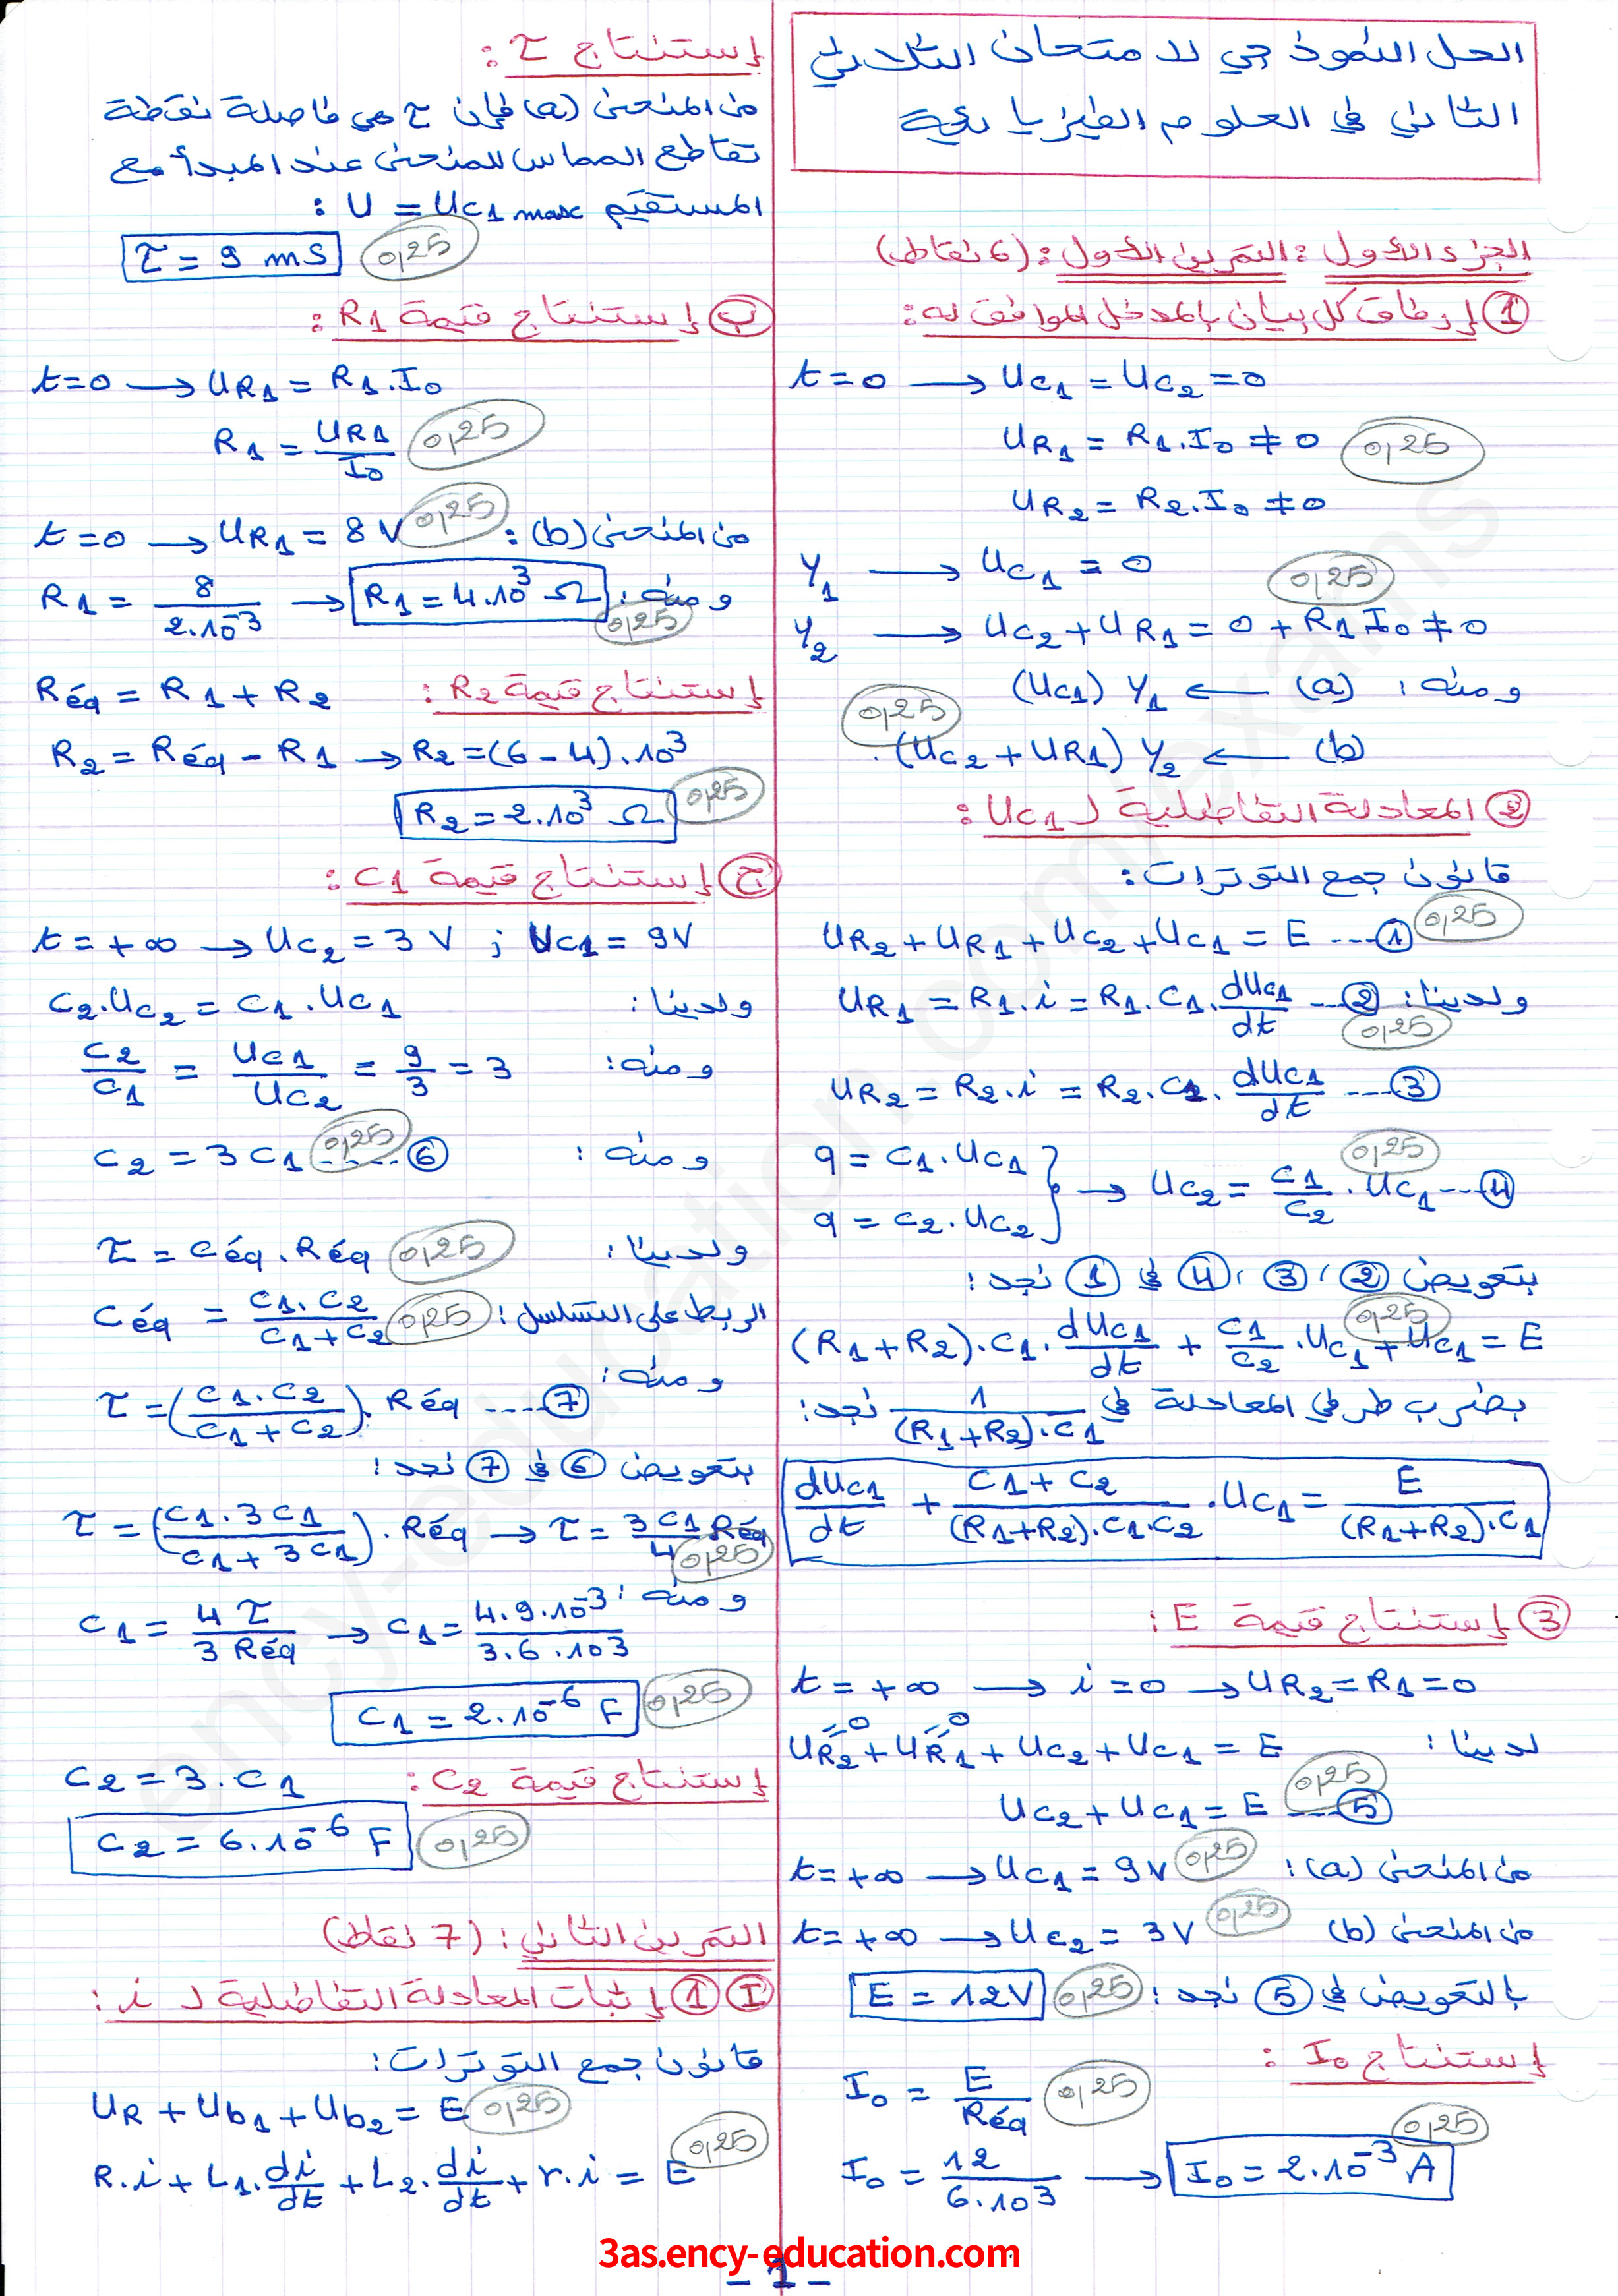 الحل النموذجي لامتحان الثلاثي
الثاني في العلوم الفيزيائية
الجزء الأول : التمرين الأول : (6 نقاط)
① إرفاق كل بيان بالمدخل الموافق له :
t=0 → Uc1 = Uc2 = 0
UR1 = R1.I0 ≠ 0 0,25
UR2 = R2.I0 ≠ 0
Y1 → Uc1 = 0 0,25
Y2 → Uc2 + UR1 = 0 + R1 I0 ≠ 0
ومنه : (a) ← Y1 (Uc1)
(b) ← Y2 (Uc2 + UR1) . 0,25
② المعادلة التفاضلية لـ Uc1 :
قانون جمع التوترات :
UR2 + UR1 + Uc2 + Uc1 = E ---① 0,25
ولدينا : UR1 = R1.i = R1.C1.dUc1/dt ---② 0,25
UR2 = R2.i = R2.C1.dUc1/dt ---③
q = C1.Uc1
q = C2.Uc2 } → Uc2 = C1/C2 . Uc1 ---④ 0,25
بتعويض ② ، ③ ، ④ في ① نجد :
(R1+R2).C1.dUc1/dt + C1/C2 .Uc1 + Uc1 = E 0,25
بضرب طرفي المعادلة في 1/(R1+R2).C1 نجد :
dUc1/dt + C1+C2/(R1+R2).C1.C2 .Uc1 = E/(R1+R2).C1
③ إستنتاج قيمة E :
t = +∞ → i = 0 → UR2 = R1 = 0
لدينا : UR2 + UR1 + Uc2 + Uc1 = E =0 =0
Uc2 + Uc1 = E ---⑤ 0,25
من المنحنى (a) : t = +∞ → Uc1 = 9V 0,25
من المنحنى (b) t = +∞ → Uc2 = 3V 0,25
بالتعويض في ⑤ نجد : E = 12V 0,25
إستنتاج I0 :
I0 = E/Réq 0,25
I0 = 12/6.10³ → I0 = 2.10⁻³ A 0,25
إستنتاج τ :
من المنحنى (a) فإن τ هي فاصلة نقطة
تقاطع المماس للمنحنى عند المبدأ مع
المستقيم U = Uc1 max :
τ = 9 mS 0,25
ب إستنتاج قيمة R1 :
t=0 → UR1 = R1.I0
R1 = UR1/I0 0,25
من المنحنى (b) : t=0 → UR1 = 8V 0,25
ومنه : R1 = 8/2.10⁻³ → R1 = 4.10³ Ω 0,25
إستنتاج قيمة R2 : Réq = R1 + R2
R2 = Réq - R1 → R2 = (6-4).10³
R2 = 2.10³ Ω 0,25
ج إستنتاج قيمة C1 :
t = +∞ → Uc2 = 3V ; Uc1 = 9V
ولدينا : C2.Uc2 = C1.Uc1
ومنه : C2/C1 = Uc1/Uc2 = 9/3 = 3
ومنه : C2 = 3C1 ----⑥ 0,25
ولدينا : τ = Céq . Réq 0,25
الربط على التسلسل : Céq = C1.C2/C1+C2 0,25
ومنه :
τ = (C1.C2/C1+C2). Réq ----⑦
بتعويض ⑥ في ⑦ نجد :
τ = (C1.3C1/C1+3C1) . Réq → τ = 3C1/4 Réq 0,25
ومنه : C1 = 4τ/3 Réq → C1 = 4.9.10⁻³/3.6.10³
C1 = 2.10⁻⁶ F 0,25
إستنتاج قيمة C2 : C2 = 3.C1
C2 = 6.10⁻⁶ F 0,25
التمرين الثاني : (7 نقاط)
Ⅰ ① إثبات المعادلة التفاضلية لـ i :
قانون جمع التوترات :
UR + Ub1 + Ub2 = E 0,25
R.i + L1.di/dt + L2.di/dt + r.i = E 0,25
ency-education.com/exams
3as.ency-education.com
- 1 -